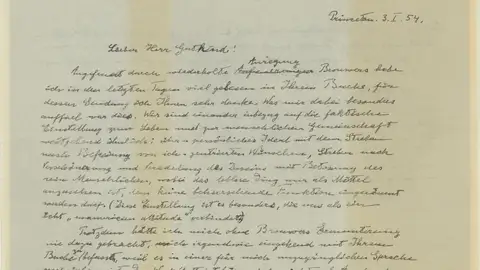 Princeton. 3. I. 54.
Lieber Herr Gutkind!
Anregung
Angefeuert durch wiederholte Brouwers habe
ich in den letzten Tagen viel gelesen in Ihrem Buche, für
dessen Sendung ich Ihnen sehr danke. Was mir dabei besonders
auffiel war dies. Wir sind einander inbezug auf die faktische
Einstellung zum Leben und zur menschlichen Gemeinschaft
weitgehend ähnlich: Ideal mit dem Streben
nach Befreiung von ich-zentrierten Wünschen, Streben nach
Verschönerung und Veredelung des Daseins mit Betonung des
rein Menschlichen, wobei das leblose Ding nur als Mittel
anzusehen ist, dem keine beherrschende Funktion eingeräumt
werden darf. (Diese Einstellung ist es besonders, die uns als ein
echt „unamerican attitude" verbindet)
Trotzdem hätte ich mich ohne Brouwers Ermunterung
nie dazu gebracht, mich irgendwie eingehend mit Ihrem
Buche zu befassen, weil es in einer für mich unzugänglichen Sprache